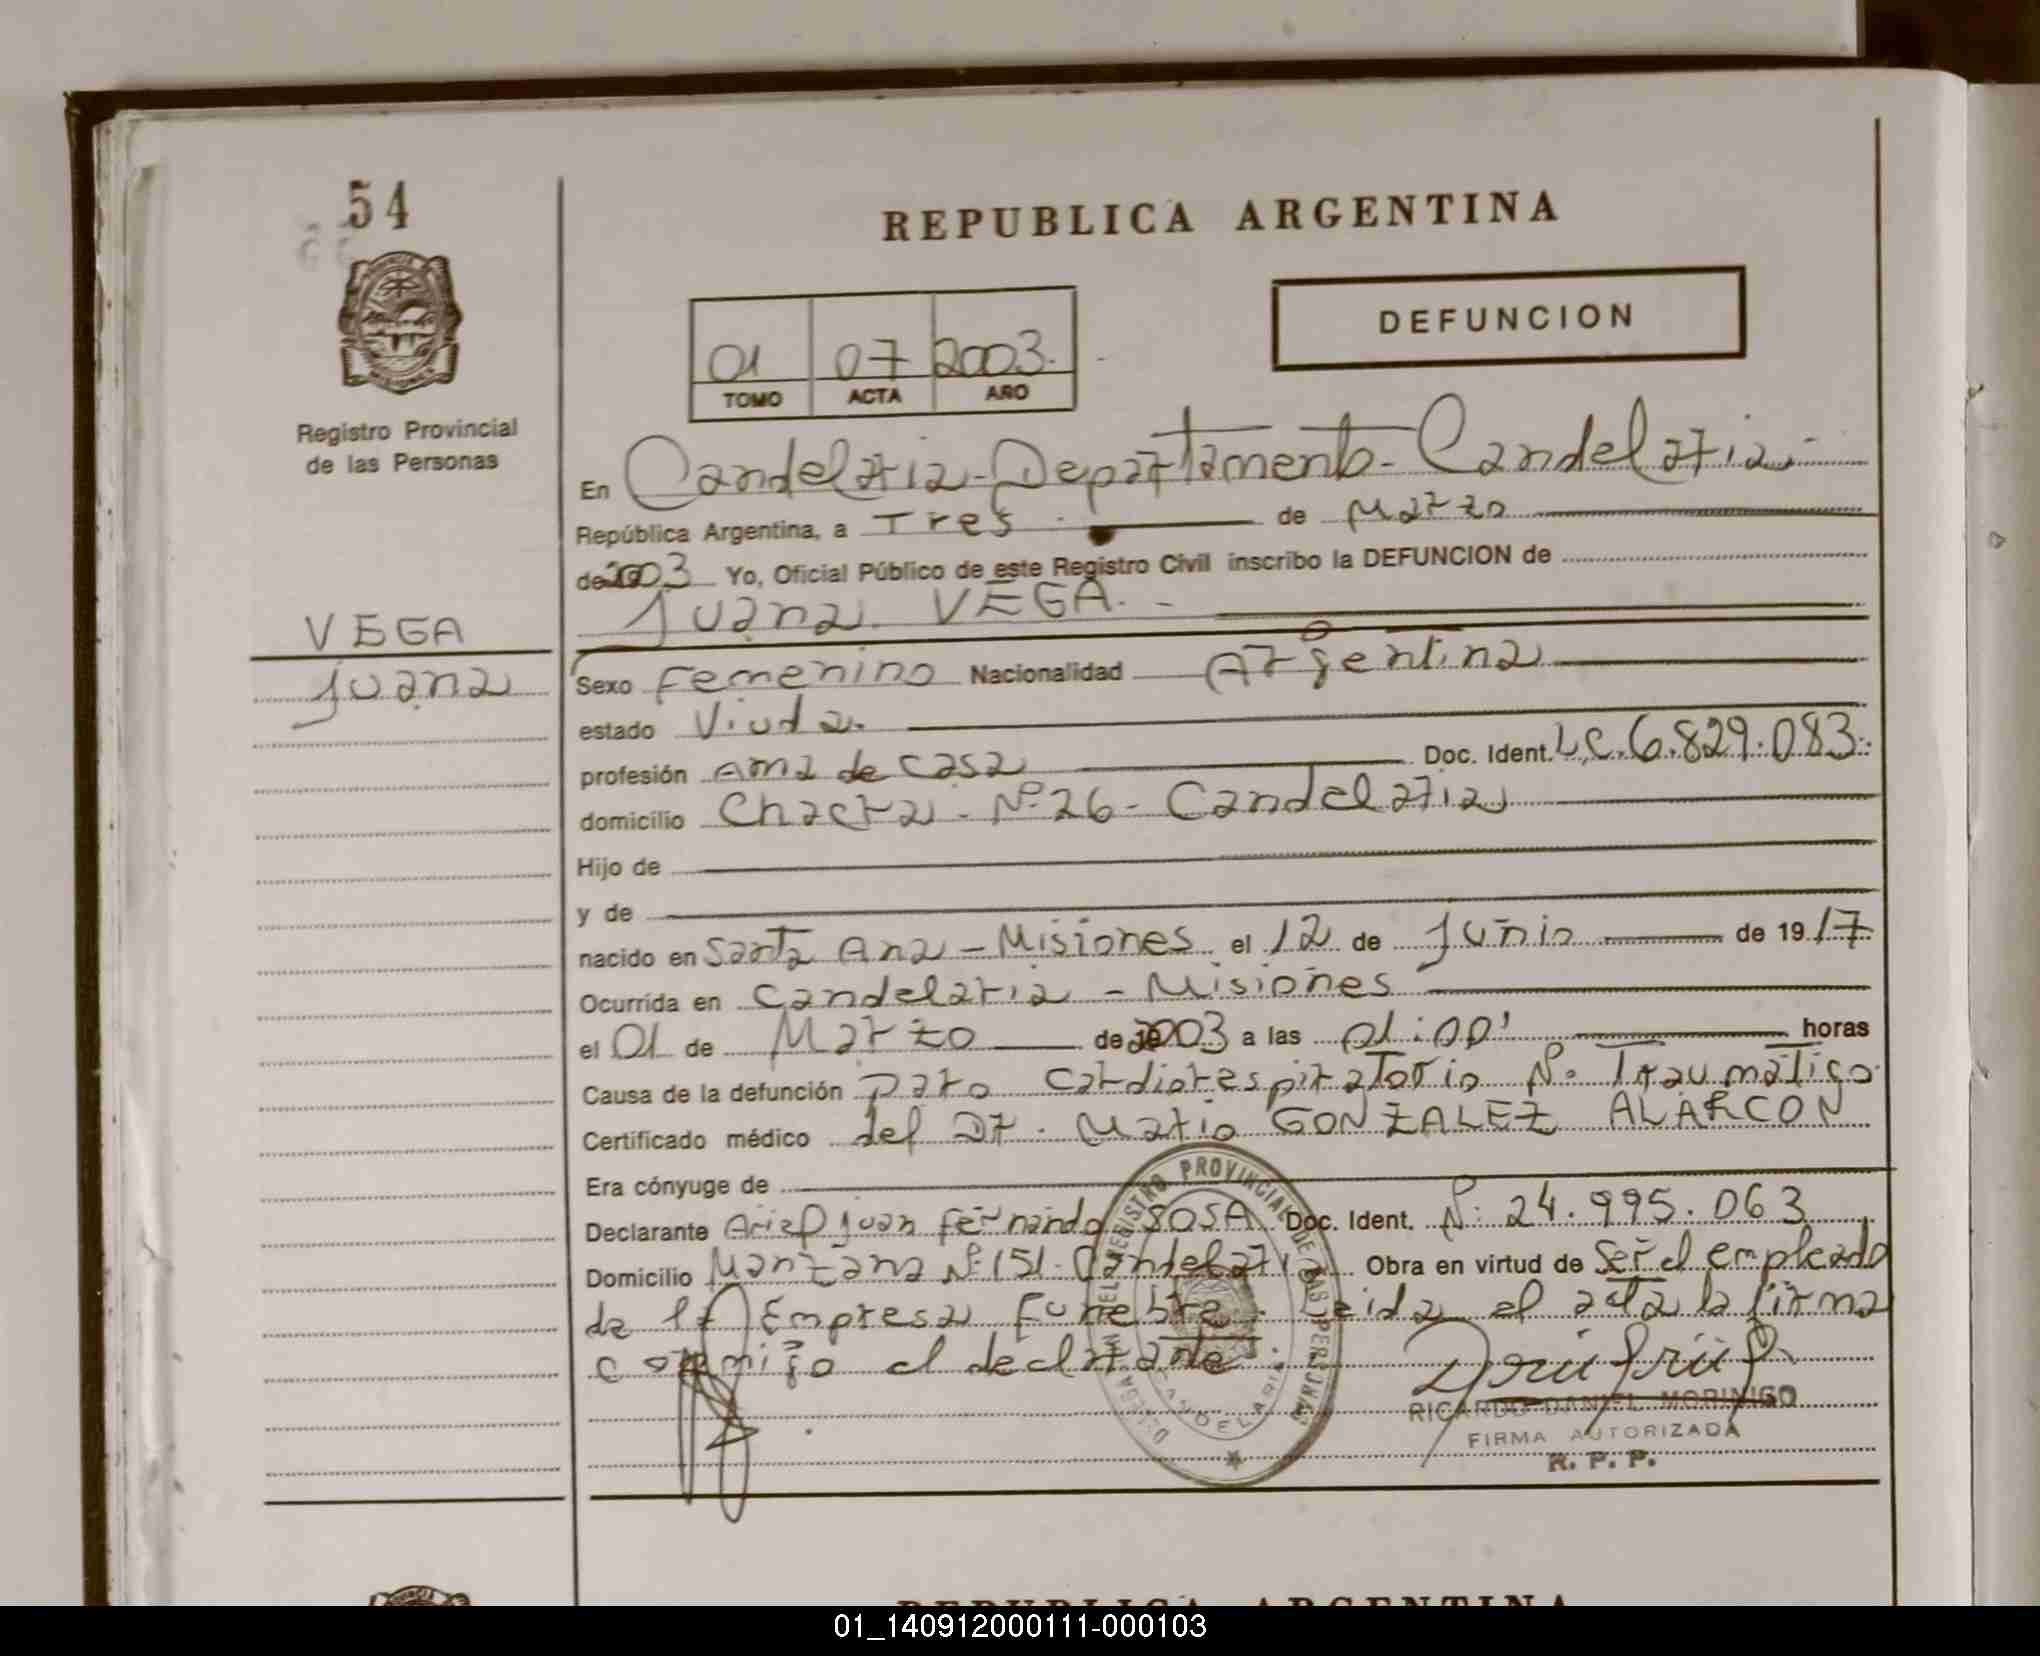 54
REPUBLICA ARGENTINA
DEFUNCION
01 07 2003.
TOMO ACTA AÑO
Registro Provincial
de las Personas
En Candelaria - Departamento - Candelaria
República Argentina, a Tres de Marzo
de 2003 Yo, Oficial Público de este Registro Civil inscribo la DEFUNCION de
Juana VEGA.
VEGA
Juana
Sexo Femenino Nacionalidad Argentina
estado Viuda.
profesión Ama de casa Doc. Ident. L.C. 6.829.083
domicilio Chacra - Nº 26 - Candelaria
Hijo de
y de
nacido en Santa Ana - Misiones el 12 de Junio de 1917
Ocurrida en Candelaria - Misiones
el 01 de Marzo de 2003 a las 01:00' horas
Causa de la defunción paro cardiorespiratorio Nº Traumatico
Certificado médico del Dr. Mario GONZALEZ ALARCON
Era cónyuge de
Declarante Ariel Juan Fernando SOSA Doc. Ident. Nº 24.995.063
Domicilio Manzana Nº 151 - Candelaria Obra en virtud de Ser el empleado
de la Empresa Funebre. Leida el acta la firma
conmigo el declarante.
DELEGACION DEL REGISTRO PROVINCIAL DE LAS PERSONAS
CANDELARIA
RICARDO DANIEL MORINIGO
FIRMA AUTORIZADA
R. P. P.
REPUBLICA ARGENTINA
01_140912000111-000103